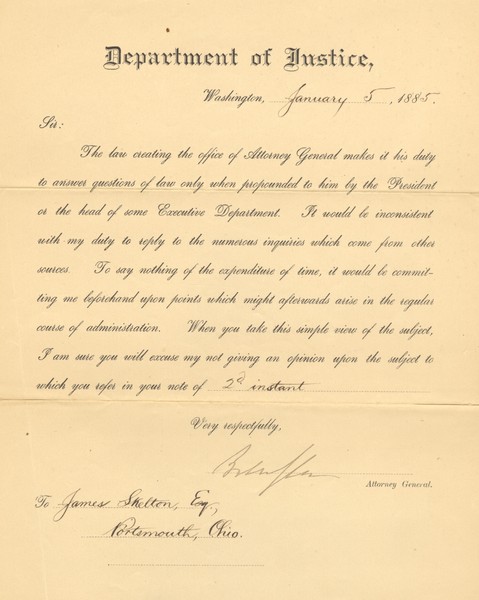 Department of Justice,
Washington, January 5, 1885.
Sir:
The law creating the office of Attorney General makes it his duty
to answer questions of law only when propounded to him by the President
or the head of some Executive Department. It would be inconsistent
with my duty to reply to the numerous inquiries which come from other
sources. To say nothing of the expenditure of time, it would be commit-
ting me beforehand upon points which might afterwards arise in the regular
course of administration. When you take this simple view of the subject,
I am sure you will excuse my not giving an opinion upon the subject to
which you refer in your note of 2d instant
Very respectfully,
Attorney General.
To James Skelton, Esq.,
Portsmouth, Ohio.